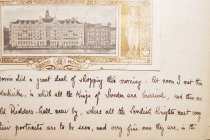 did a great deal of shopping this morning - At noon I met the
, in which all the Kings of Sweden are buried, and then we
old Riddars-hall near by, where all the Swedish Knights meet
their portraits are to be seen, and very fine ones they are, in the